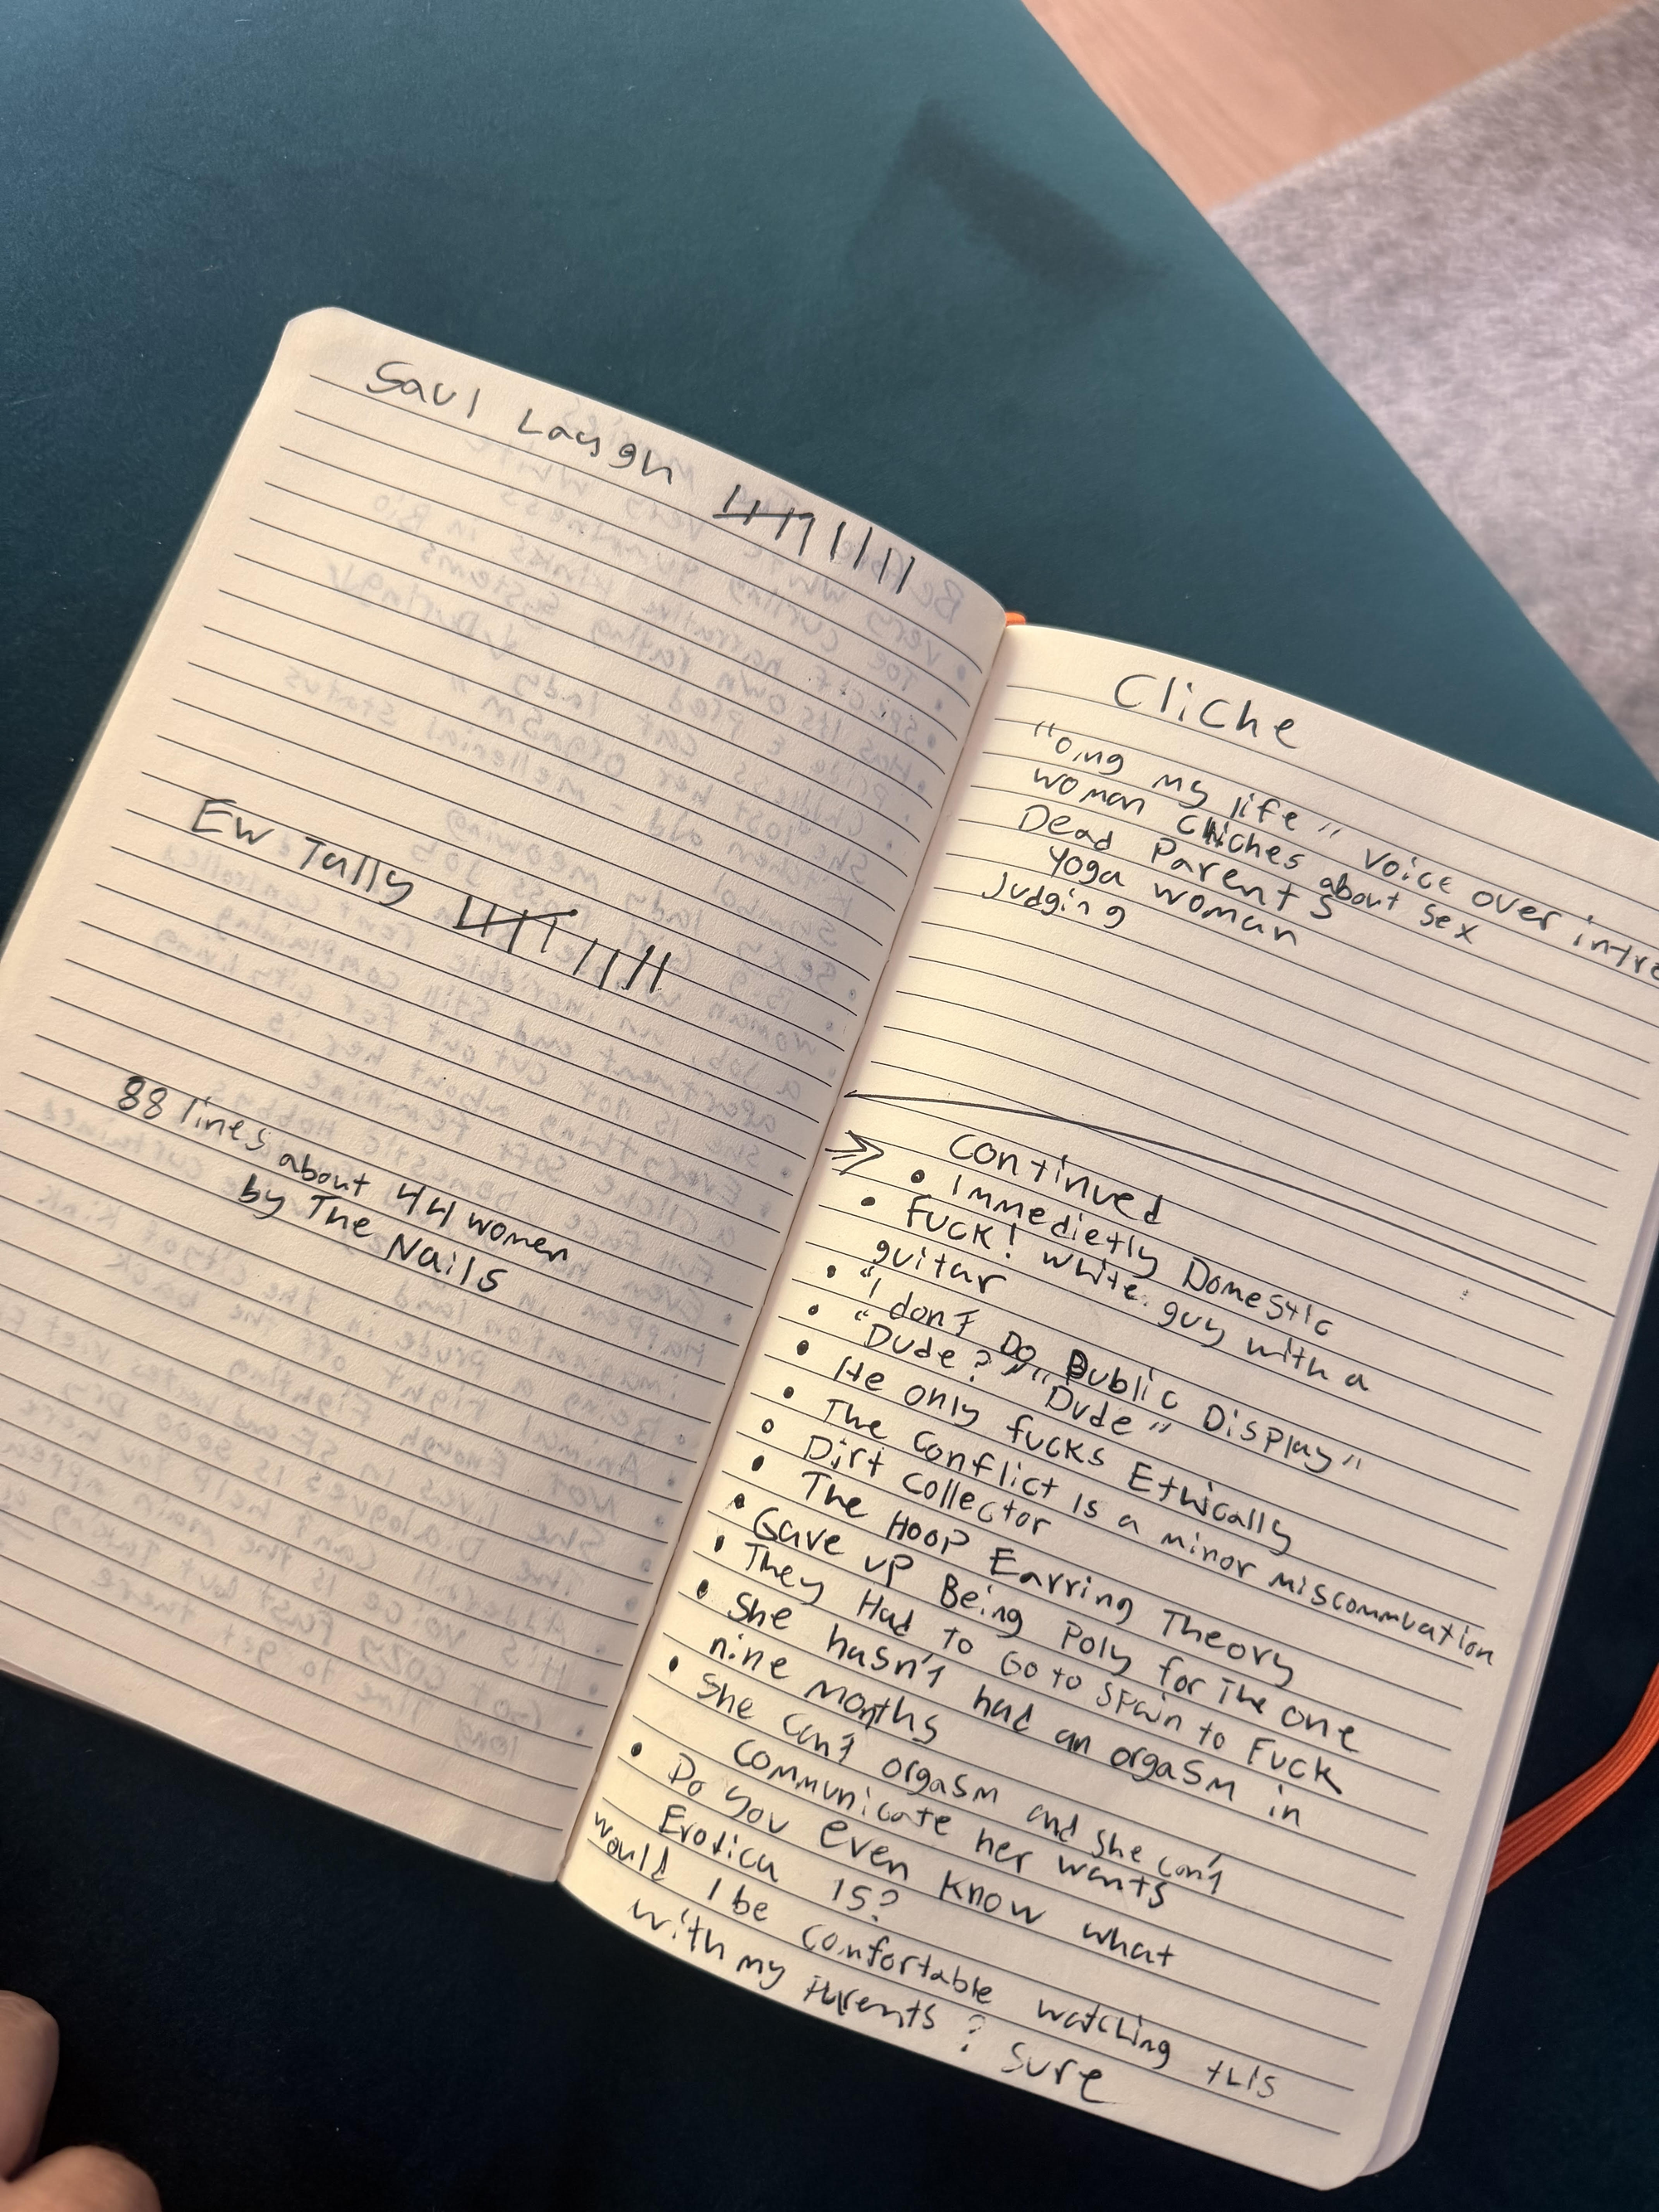 Saul Laugh
Ew Tally
88 lines about 44 women
by The Nails
Cliche
"omg my life" voice over intro
woman cliches about sex
Dead Parents
Yoga woman
Judging
Continued
• Immedietly Domestic
• FUCK! White guy with a
guitar
• "I don't Do Public Display"
• "Dude?" "Dude"
• He only fucks Ethically
• The Conflict is a minor miscommuation
• Dirt Collector
• The Hoop Earring Theory
• Gave up Being Poly for The one
• They Had to Go to Spain to Fuck
• She hasn't had an orgasm in
nine months
• She can't orgasm and she can't
communicate her wants
• Do you even know what
Erotica is?
would I be comfortable watching this
with my parents? Sure